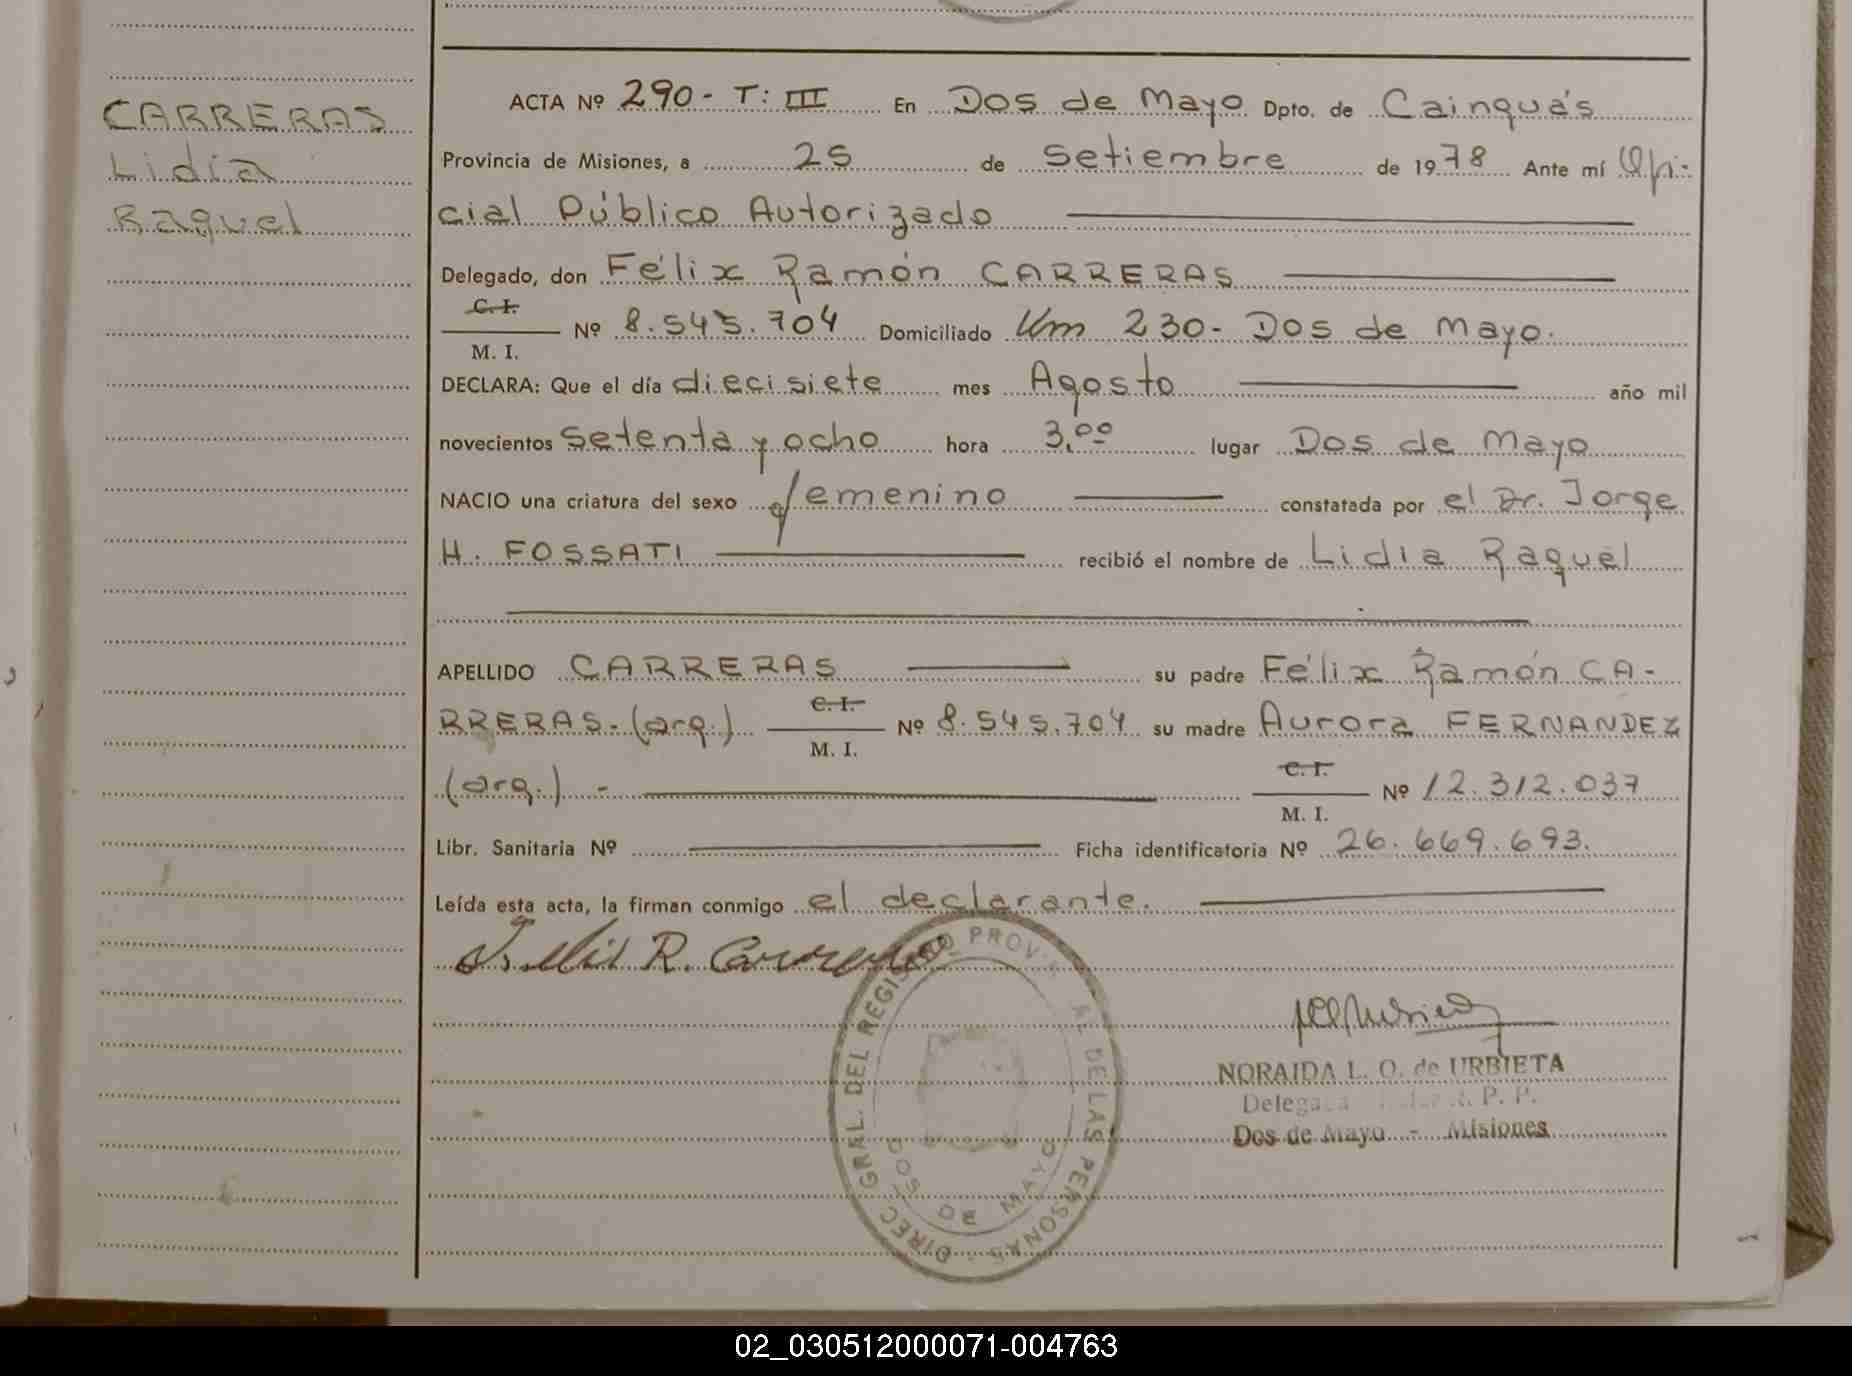 CARRERAS
Lidia
Raquel
ACTA Nº 290- T: III En Dos de Mayo Dpto. de Cainguás
Provincia de Misiones, a 25 de Setiembre de 1978 Ante mí Ofi-
cial Público Autorizado
Delegado, don Félix Ramón CARRERAS
C. I.
M. I. Nº 8.545.704 Domiciliado Km 230- Dos de Mayo.
DECLARA: Que el día diecisiete mes Agosto año mil
novecientos Setenta y ocho hora 3,00 lugar Dos de Mayo
NACIO una criatura del sexo femenino constatada por el Dr. Jorge
H. FOSSATI recibió el nombre de Lidia Raquel
APELLIDO CARRERAS su padre Félix Ramón CA-
RRERAS-(arg.) C. I. M. I. Nº 8.545.704 su madre Aurora FERNANDEZ
(arg.) - C. I. M. I. Nº 12.312.037
Libr. Sanitaria Nº Ficha identificatoria Nº 26.669.693.
Leída esta acta, la firman conmigo el declarante.
R. Carreras
DIREC. GRAL. DEL REGISTRO PROV. AL DE LAS PERSONAS
DOS DE MAYO
NORAIDA L. O. de URBIETA
Delegada R. P. P.
Dos de Mayo - Misiones
02_030512000071-004763